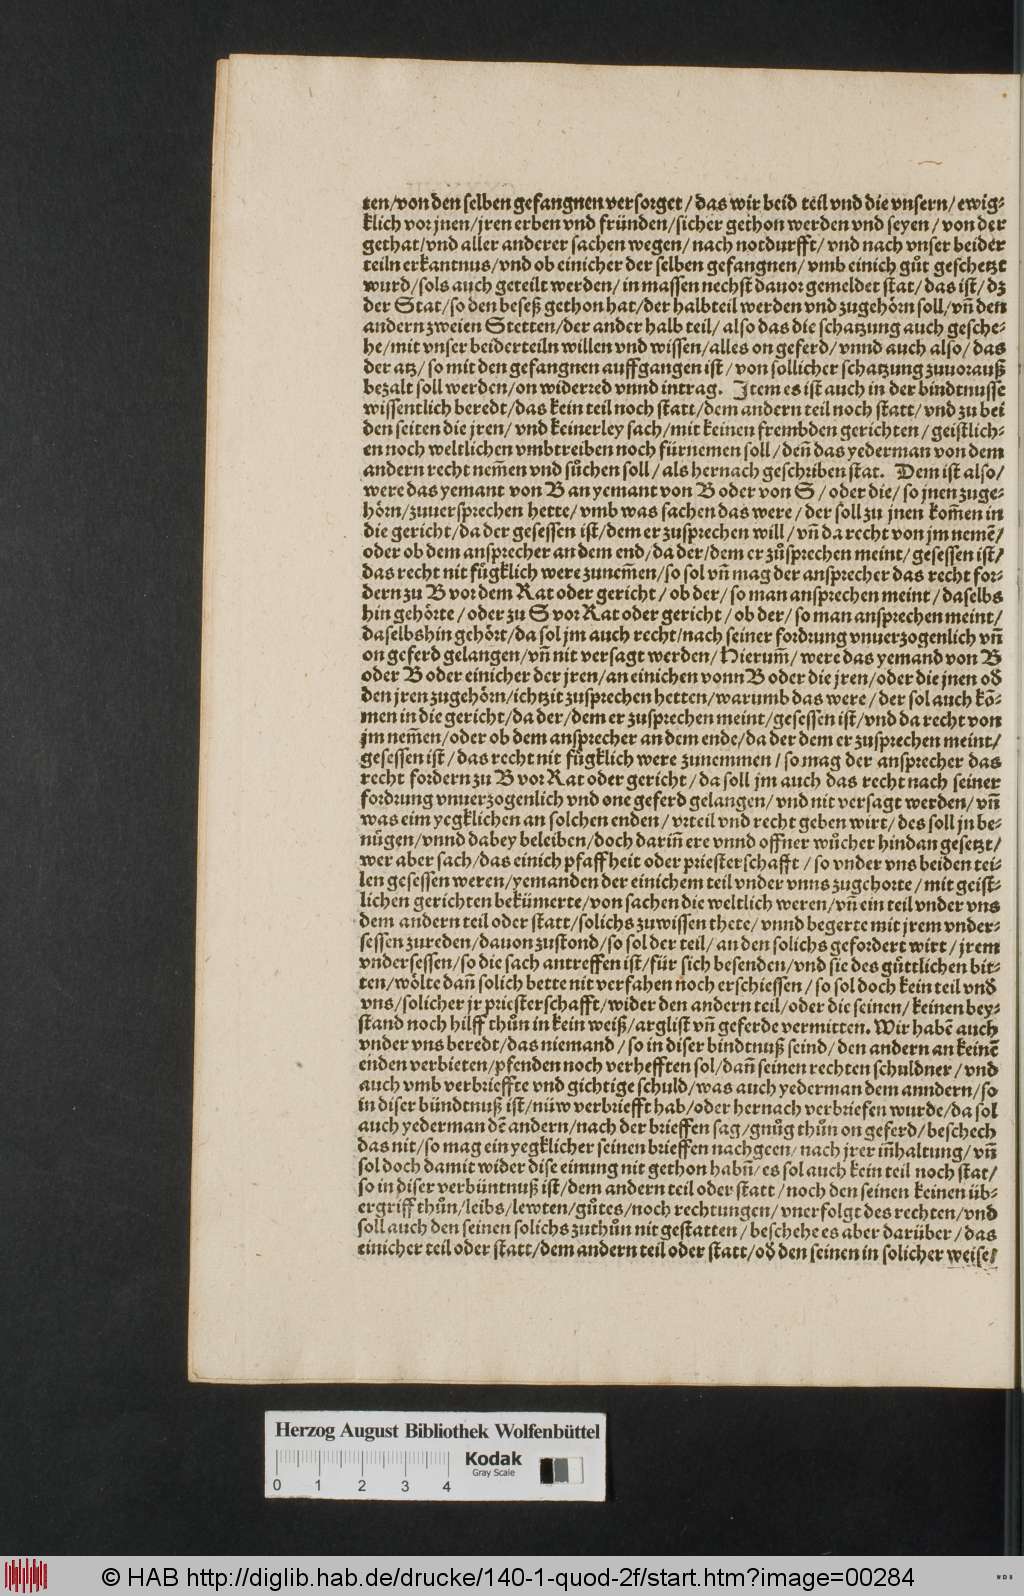 ten/von den selben gefangnen versorget/das wir beid teil vnd die vnsern/ewig-
klich vor jnen/jren erben vnd fründen/sicher gethon werden vnd seyen/von der
gethat/vnd aller anderer sachen wegen/nach notdurfft/vnd nach vnser beider
teiln erkantnus/vnd ob einicher der selben gefangnen/vmb einich gůt geschetzt
wurd/sols auch geteilt werden/in massen nechst dauor gemeldet stat/das ist/dz
der Stat/so den beseß gethon hat/der halbteil werden vnd zugehörn soll/vn̄ den
andern zweien Stetten/der ander halb teil/also das die schatzung auch gesche-
he/mit vnser beiderteiln willen vnd wissen/alles on geferd/vnnd auch also/das
der atz/so mit den gefangnen auffgangen ist/von sollicher schatzung zuuorauß
bezalt soll werden/on widerred vnnd intrag. Item es ist auch in der bindtnusse
wissentlich beredt/das kein teil noch statt/dem andern teil noch statt/vnd zu bei
den seiten die jren/vnd keinerley sach/mit keinen frembden gerichten/geistlich-
en noch weltlichen vmbtreiben noch fürnemen soll/den̄ das yederman von dem
andern recht nem̄en vnd sůchen soll/als hernach geschriben stat. Dem ist also/
were das yemant von B an yemant von B oder von S/oder die/so jnen zuge-
hörn/zuuersprechen hette/vmb was sachen das were/der soll zu jnen kom̄en in
die gericht/da der gesessen ist/dem er zusprechen will/vn̄ da recht von jm nemē/
oder ob dem ansprecher an dem end/da der/dem er zůsprechen meint/gesessen ist/
das recht nit fůgklich were zunem̄en/so sol vn̄ mag der ansprecher das recht for-
dern zu B vor dem Rat oder gericht/ob der/so man ansprechen meint/daselbs
hin gehörte/oder zu S vor Rat oder gericht/ob der/so man ansprechen meint/
daselbshin gehört/da sol jm auch recht/nach seiner fordrung vnuerzogenlich vn̄
on geferd gelangen/vn̄ nit versagt werden/Hierum̄/were das yemand von B
oder B oder einicher der jren/an einichen vonn B oder die jren/oder die jnen od̄
den jren zugehörn/ichtzit zusprechen hetten/warumb das were/der sol auch kō-
men in die gericht/da der/dem er zusprechen meint/gesessen ist/vnd da recht von
jm nem̄en/oder ob dem ansprecher an dem ende/da der dem er zusprechen meint/
gesessen ist/das recht nit fůgklich were zunemmen/so mag der ansprecher das
recht fordern zu B vor Rat oder gericht/da soll jm auch das recht nach seiner
fordrung vnuerzogenlich vnd one geferd gelangen/vnd nit versagt werden/vn̄
was eim yegklichen an solchen enden/vrteil vnd recht geben wirt/des soll jn be-
nůgen/vnnd dabey beleiben/doch darin̄ ere vnnd offner wůcher hindan gesetzt/
wer aber sach/das einich pfaffheit oder priesterschafft/so vnder vns beiden tei-
len gesessen weren/yemanden der einichem teil vnder vnns zugehorte/mit geist-
lichen gerichten bekümerte/von sachen die weltlich weren/vn̄ ein teil vnder vns
dem andern teil oder statt/solichs zuwissen thete/vnnd begerte mit jrem vnder-
sessen zureden/dauon zustond/so sol der teil/an den solichs gefordert wirt/jrem
vndersessen/so die sach antreffen ist/für sich besenden/vnd sie des gůttlichen bit-
ten/wölte dan̄ solich bette nit verfahen noch erschiessen/so sol doch kein teil vnd̄
vns/solicher jr priesterschafft/wider den andern teil/oder die seinen/keinen bey-
stand noch hilff thůn in kein weiß/arglist vn̄ geferde vermitten. Wir habē auch
vnder vns beredt/das niemand/so in diser bindtnuß seind/den andern an keinē
enden verbieten/pfenden noch verhefften sol/dan̄ seinen rechten schuldner/vnd
auch vmb verbrieffte vnd gichtige schuld/was auch yederman dem anndern/so
in diser bündtnuß ist/nüw verbriefft hab/oder hernach verbriefen wurde/da sol
auch yederman dē andern/nach der brieffen sag/gnůg thůn on geferd/beschech
das nit/so mag ein yegklicher seinen brieffen nachgeen/nach jrer in̄haltung/vn̄
sol doch damit wider dise einung nit gethon habn̄/es sol auch kein teil noch stat/
so in diser verbüntnuß ist/dem andern teil oder statt/noch den seinen keinen üb-
ergriff thůn/leibs/lewten/gůtes/noch rechtungen/vnerfolgt des rechten/vnd
soll auch den seinen solichs zuthůn nit gestatten/beschehe es aber darüber/das
einicher teil oder statt/dem andern teil oder statt/od̄ den seinen in solicher weise/
Herzog August Bibliothek Wolfenbüttel
Kodak
Gray Scale
0 1 2 3 4
© HAB http://diglib.hab.de/drucke/140-1-quod-2f/start.htm?image=00284